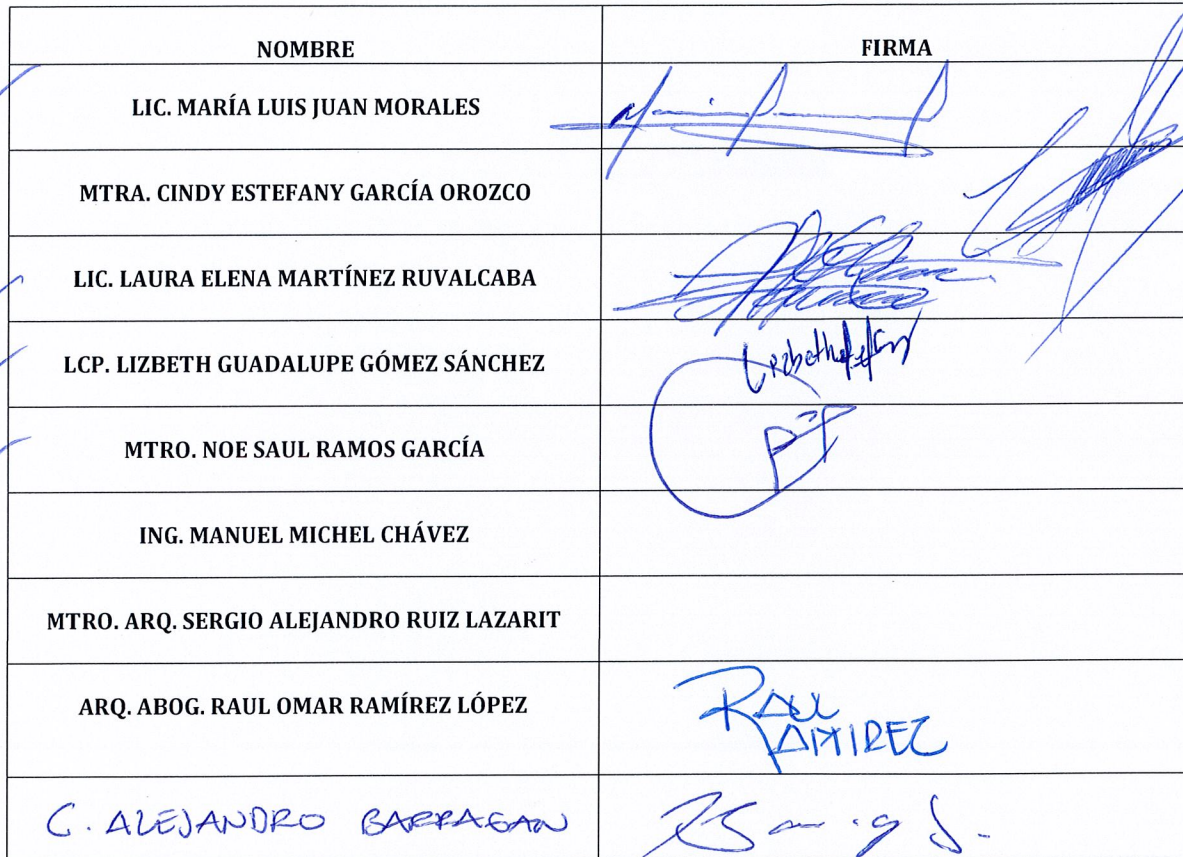 NOMBRE FIRMA
LIC. MARÍA LUIS JUAN MORALES
MTRA. CINDY ESTEFANY GARCÍA OROZCO
LIC. LAURA ELENA MARTÍNEZ RUVALCABA
LCP. LIZBETH GUADALUPE GÓMEZ SÁNCHEZ Lizbeth
MTRO. NOE SAUL RAMOS GARCÍA
ING. MANUEL MICHEL CHÁVEZ
MTRO. ARQ. SERGIO ALEJANDRO RUIZ LAZARIT
ARQ. ABOG. RAUL OMAR RAMÍREZ LÓPEZ RAUL
RAMIREZ
C. ALEJANDRO BARRAGAN